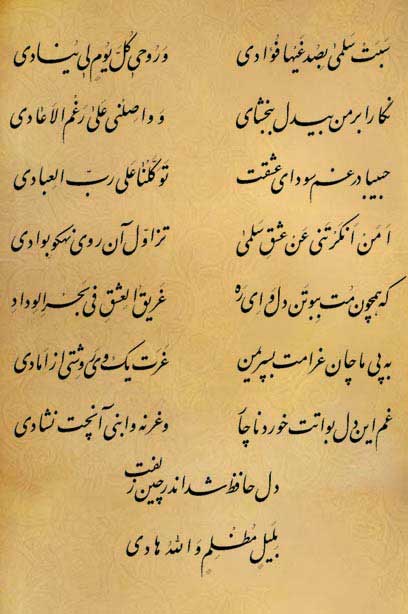 سَبَتْ سَلْمیٰ بِصُدْغَیْها فُؤادی وَ رُوحی کُلَّ یَوْمٍ لی یُنادی
نگارا بر من بیدل ببخشای وَ واصِلْنی عَلیٰ رَغْمِ الاَعادی
حبیبا در غم سودای عشقت تَوَکَّلْنا عَلیٰ رَبِّ العِبادی
اَمَنْ اَنْکَرْتَنی عَنْ عِشْقِ سَلْمیٰ تزاول آن روی نهکو بوادی
که همچون مت ببوتن دل و ای ره غَریقُ العِشْقِ فی بَحْرِ الوِداد
به پی ماچان غرامت بسپریمن غَرَت یک وی روشتی از اَمادی
غم این دل بواتت خورد ناچار وغرنه وابنی آنچت نشادی
دل حافظ شد اندر چین زلفت
بِلَیْلٍ مُظْلِمٍ وَاللهُ هادی